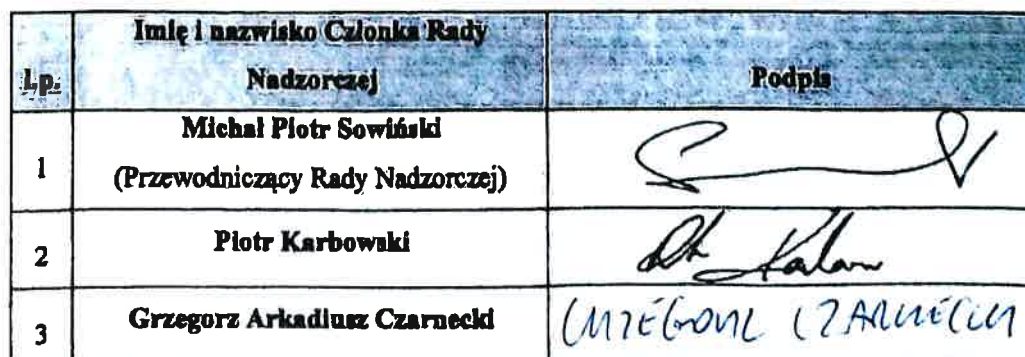 Imię i nazwisko Członka Rady
Nadzorczej
L.p.
Podpis
Michał Piotr Sowiński
1
(Przewodniczący Rady Nadzorczej)
2
Piotr Karbowski
3
Grzegorz Arkadiusz Czarnecki
GRZEGORZ CZARNECKI